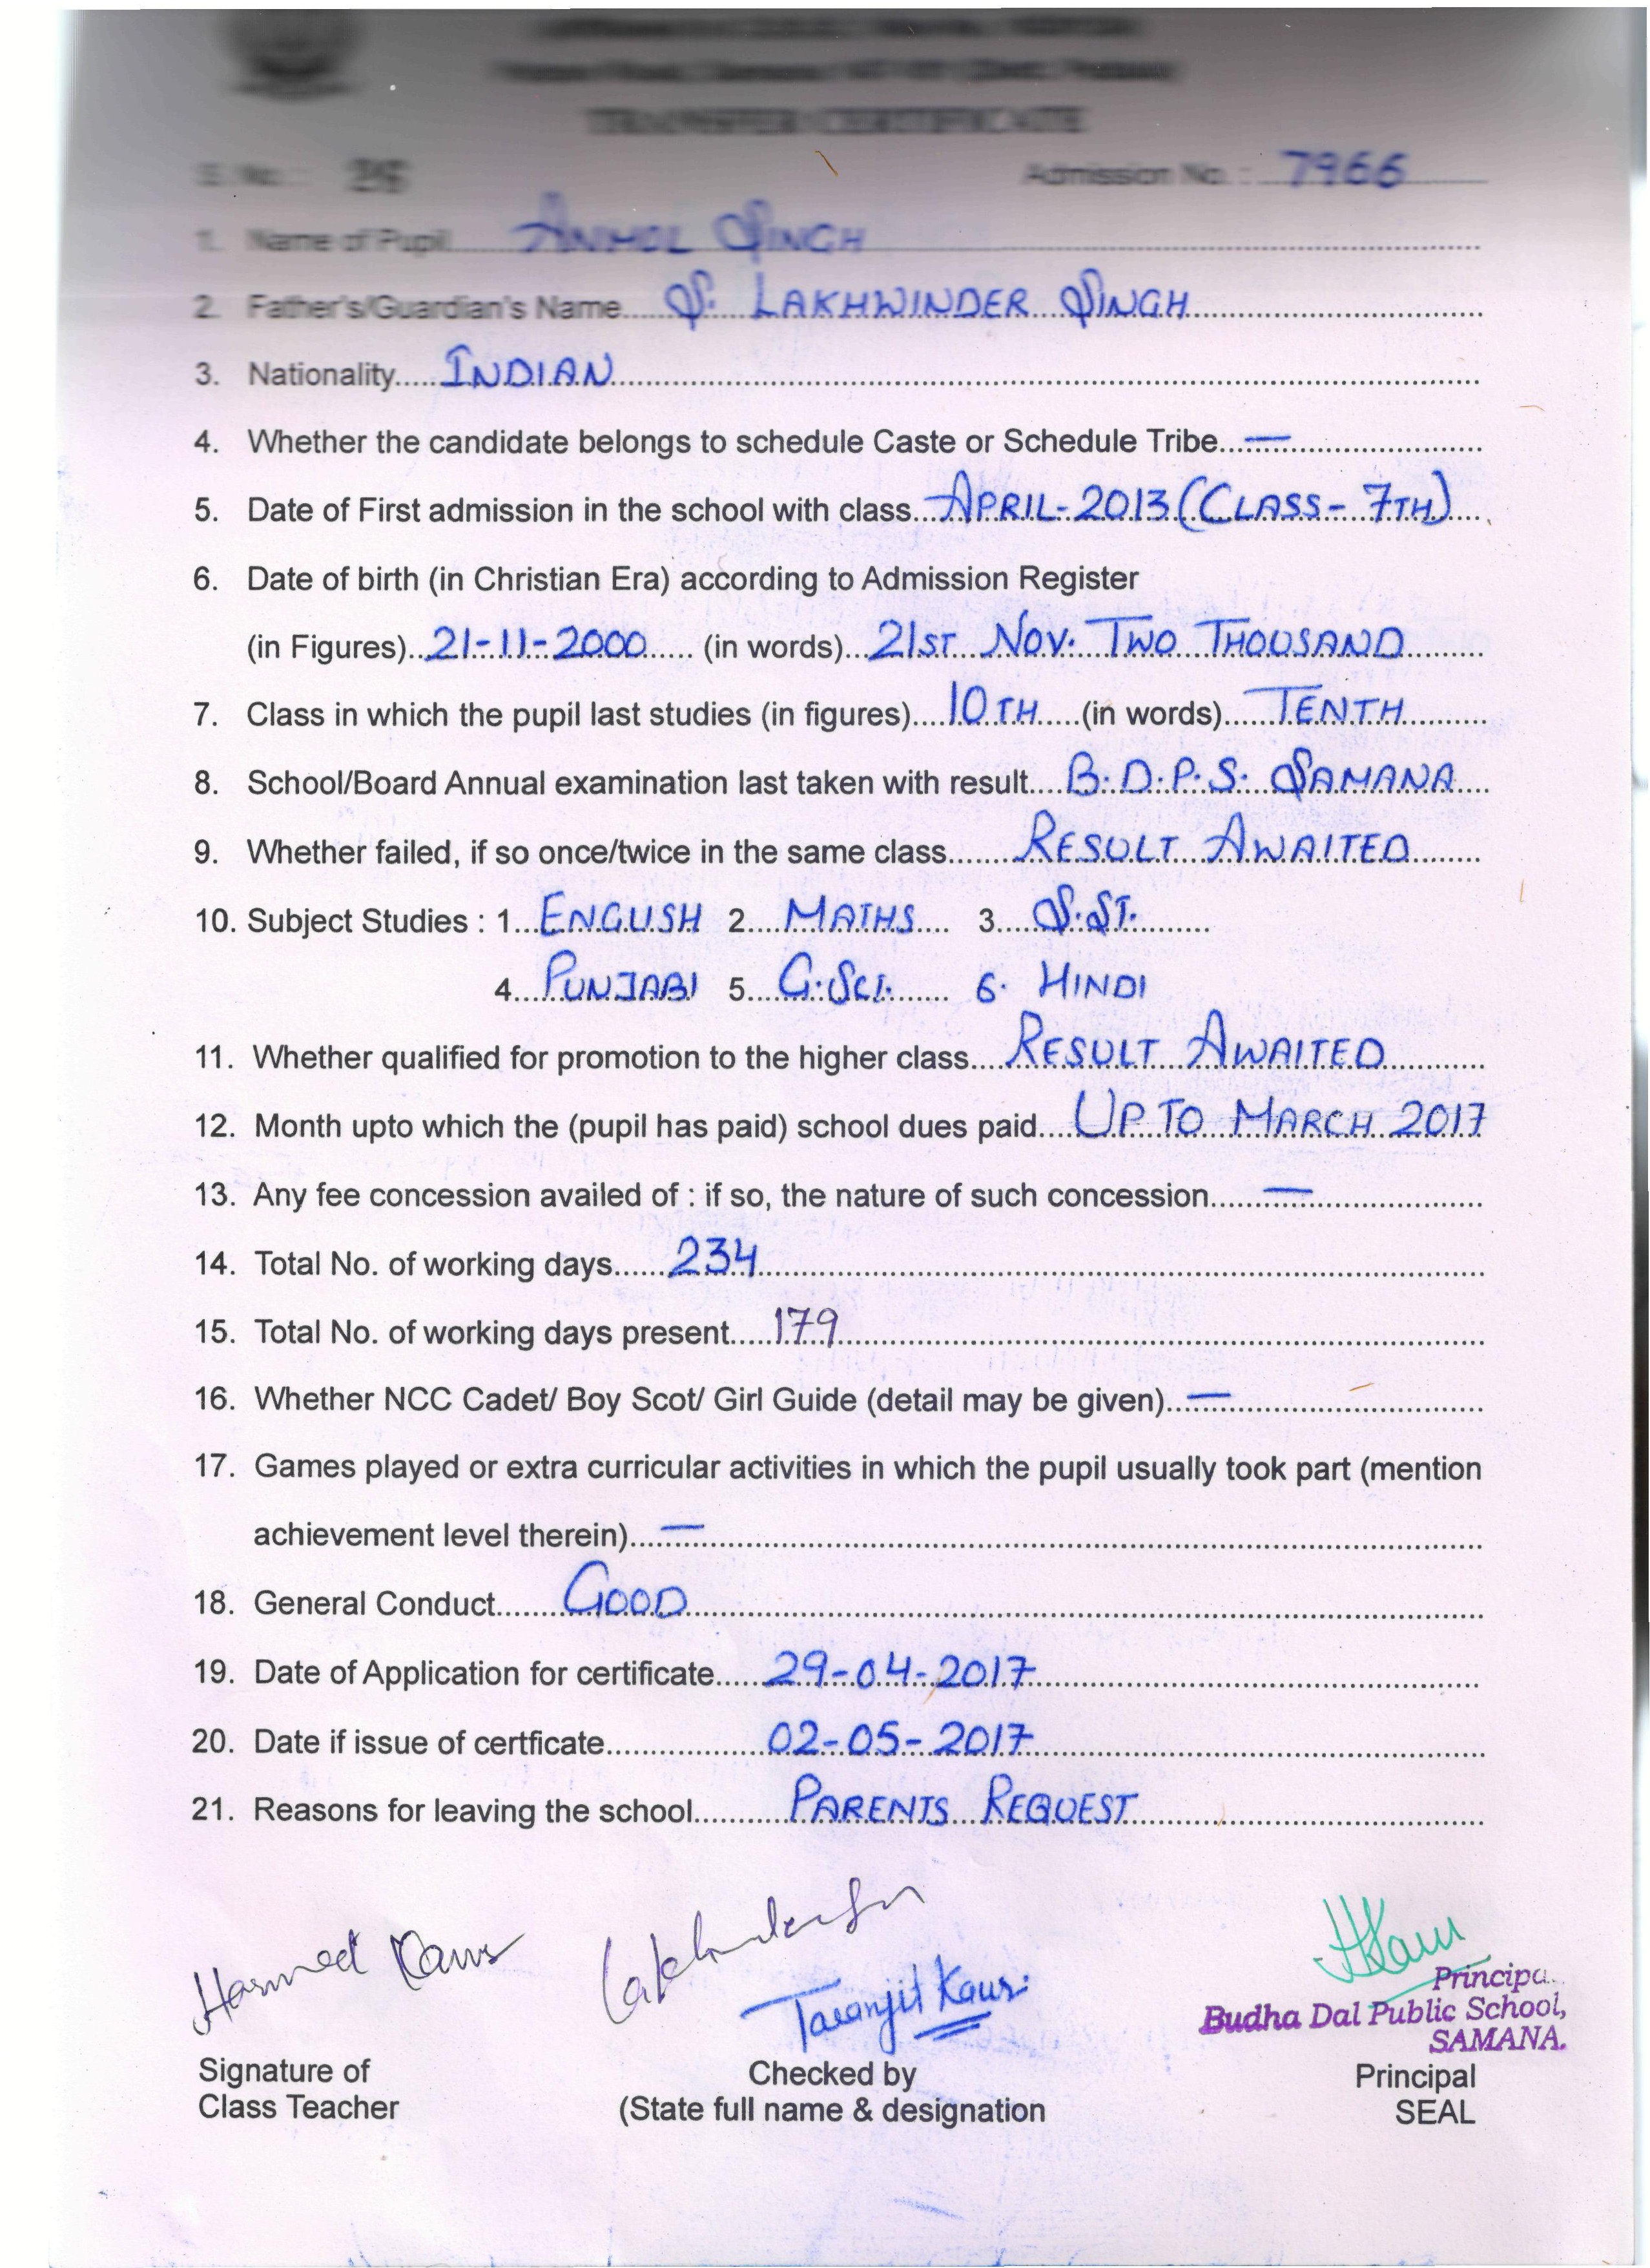 TRANSFER CERTIFICATE
S. No. : Admission No. : 7966
1. Name of Pupil ANMOL SINGH
2. Father's/Guardian's Name S. LAKHWINDER SINGH
3. Nationality INDIAN
4. Whether the candidate belongs to schedule Caste or Schedule Tribe —
5. Date of First admission in the school with class APRIL-2013 (CLASS- 7TH)
6. Date of birth (in Christian Era) according to Admission Register
(in Figures) 21-11-2000 (in words) 21ST NOV. TWO THOUSAND
7. Class in which the pupil last studies (in figures) 10TH (in words) TENTH
8. School/Board Annual examination last taken with result B.D.P.S. SAMANA
9. Whether failed, if so once/twice in the same class RESULT AWAITED
10. Subject Studies : 1. ENGLISH 2. MATHS 3. S.ST.
4. PUNJABI 5. G.SCI. 6. HINDI
11. Whether qualified for promotion to the higher class RESULT AWAITED
12. Month upto which the (pupil has paid) school dues paid UP TO MARCH 2017
13. Any fee concession availed of : if so, the nature of such concession —
14. Total No. of working days 234
15. Total No. of working days present 179
16. Whether NCC Cadet/ Boy Scot/ Girl Guide (detail may be given) —
17. Games played or extra curricular activities in which the pupil usually took part (mention
achievement level therein) —
18. General Conduct GOOD
19. Date of Application for certificate 29-04-2017
20. Date if issue of certficate 02-05-2017
21. Reasons for leaving the school PARENTS REQUEST
Kaur
Taranjit Kaur
Principa
Budha Dal Public School,
SAMANA.
Signature of Checked by Principal
Class Teacher (State full name & designation SEAL